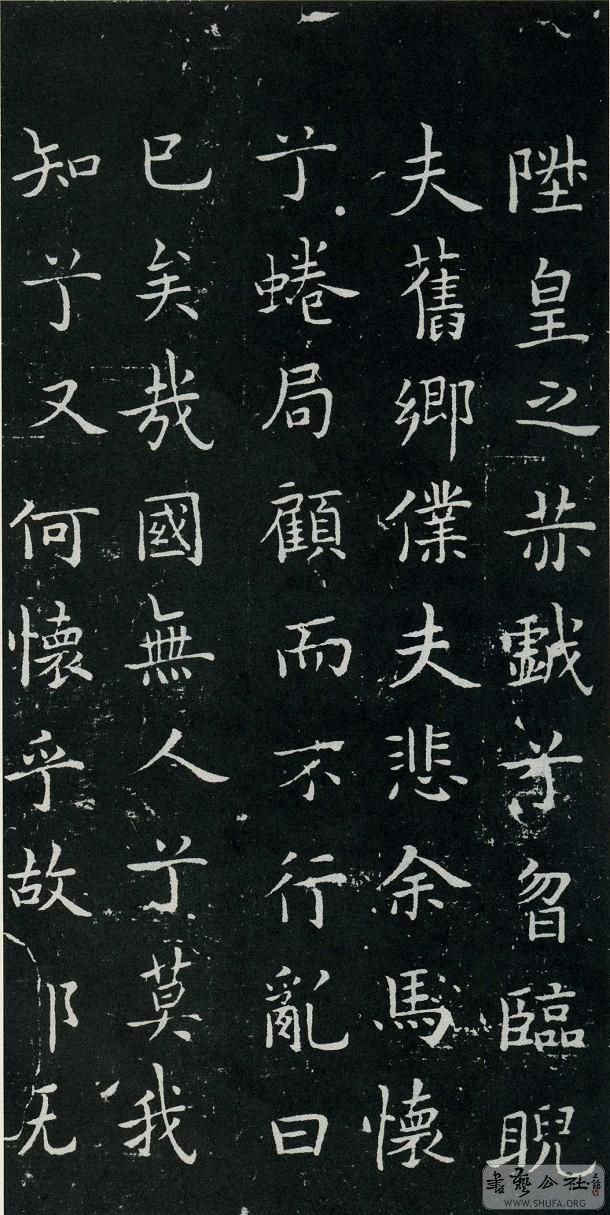 陞皇之戯兮曶臨睨
夫舊鄉僕夫悲余馬懷
兮蜷局顧而不行亂曰
已矣哉國無人兮莫我
知兮又何懷乎故
書藝公社
WWW.SHUFA.ORG